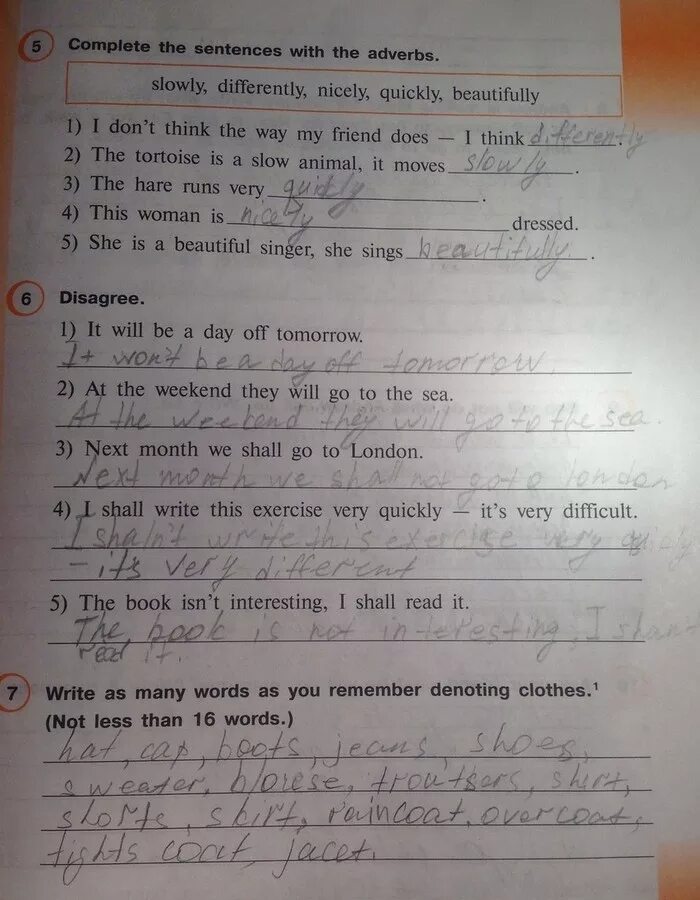 5 Complete the sentences with the adverbs.
slowly, differently, nicely, quickly, beautifully
1) I don't think the way my friend does — I think differently
2) The tortoise is a slow animal, it moves slowly.
3) The hare runs very quickly.
4) This woman is nicely dressed.
5) She is a beautiful singer, she sings beautifully.
6 Disagree.
1) It will be a day off tomorrow.
It won't be a day off tomorrow.
2) At the weekend they will go to the sea.
At the weekend they will go to the sea.
3) Next month we shall go to London.
Next month we shall not go to london
4) I shall write this exercise very quickly — it's very difficult.
I shaln't write this exercise very quickly
- it's very different
5) The book isn't interesting, I shall read it.
The book is not interesting, I shant
read it.
7 Write as many words as you remember denoting clothes.¹
(Not less than 16 words.)
hat, cap, boots, jeans, shoes,
sweater, blouse, trouthers, shirt,
shorts, skirt, raincoat, overcoat,
tights coat, jacet.